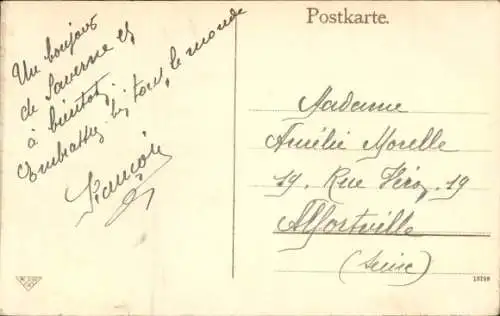 Postkarte.
Un bonjour
de Saverne et
à bientôt.
Embrassez bien tout le monde
François
Madame
Amélie Morelle
19. Rue Véron. 19
Alfortville
(Seine)